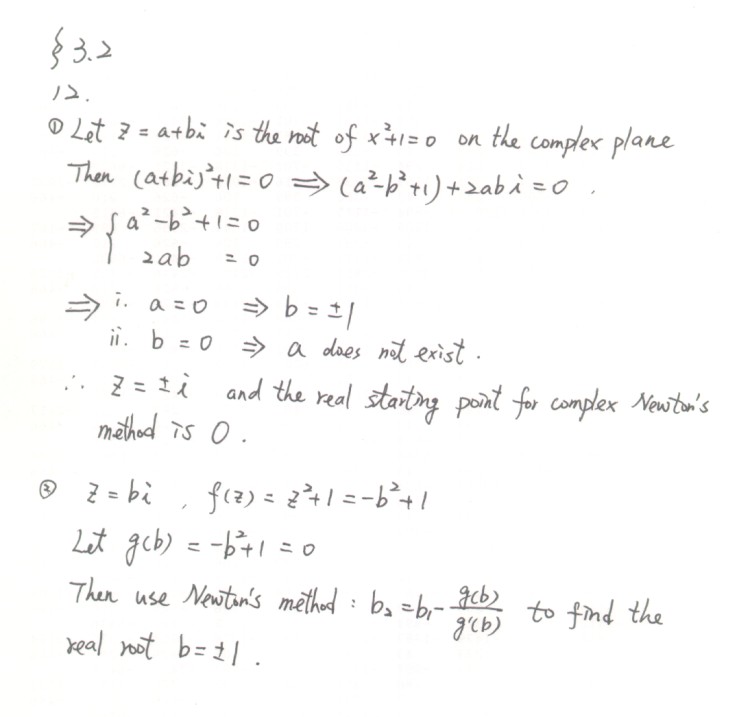 §3.2
12.
① Let z = a+bi is the root of x²+1=0 on the complex plane
Then (a+bi)²+1=0 ⇒ (a²-b²+1)+2abi=0.
⇒ { a²-b²+1=0
2ab = 0
⇒ i. a=0 ⇒ b=±1
ii. b=0 ⇒ a does not exist.
∴ z=±i and the real starting point for complex Newton's
method is 0.
② z=bi, f(z)=z²+1=-b²+1
Let g(b) = -b²+1 = 0
Then use Newton's method : b₂=b₁- g(b)/g'(b) to find the
real root b=±1.